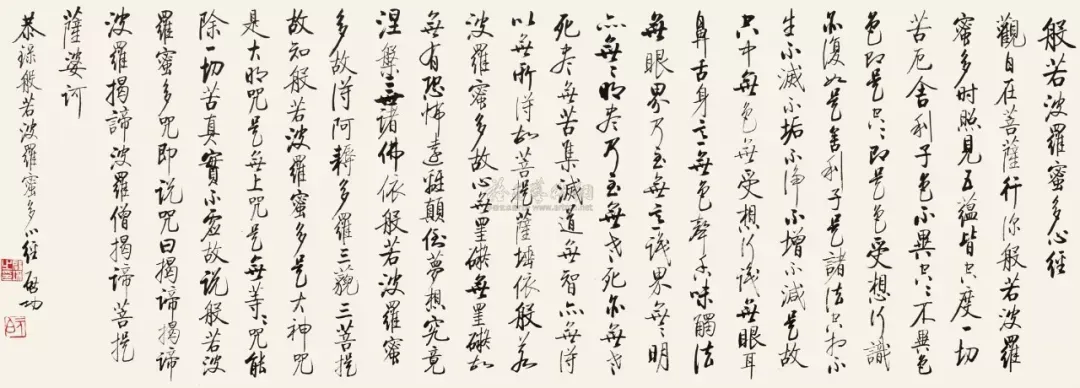 般若波羅蜜多心經
觀自在菩薩行深般若波羅
蜜多时照見五蘊皆空度一切
苦厄舍利子色不異空々不異色
色即是空々即是色受想行識
亦復如是舍利子是諸法空相不
生不滅不垢不淨不增不減是故
空中無色無受想行識無眼耳
鼻舌身意無色聲香味觸法
無眼界乃至無意識界無々明
亦無々明盡乃至無老死亦無老
死盡無苦集滅道無智亦無得
以無所得故菩提薩埵依般若
波羅蜜多故心無罣礙無罣礙故
無有恐怖遠離顛倒夢想究竟
涅槃三世諸佛依般若波羅蜜
多故得阿耨多羅三藐三菩提
故知般若波羅蜜多是大神咒
是大明咒是無上咒是無等々咒能
除一切苦真實不虛故說般若波
羅蜜多咒即说咒曰揭諦揭諦
波羅揭諦波羅僧揭諦菩提
薩婆訶
恭錄般若波羅蜜多心經 啟功